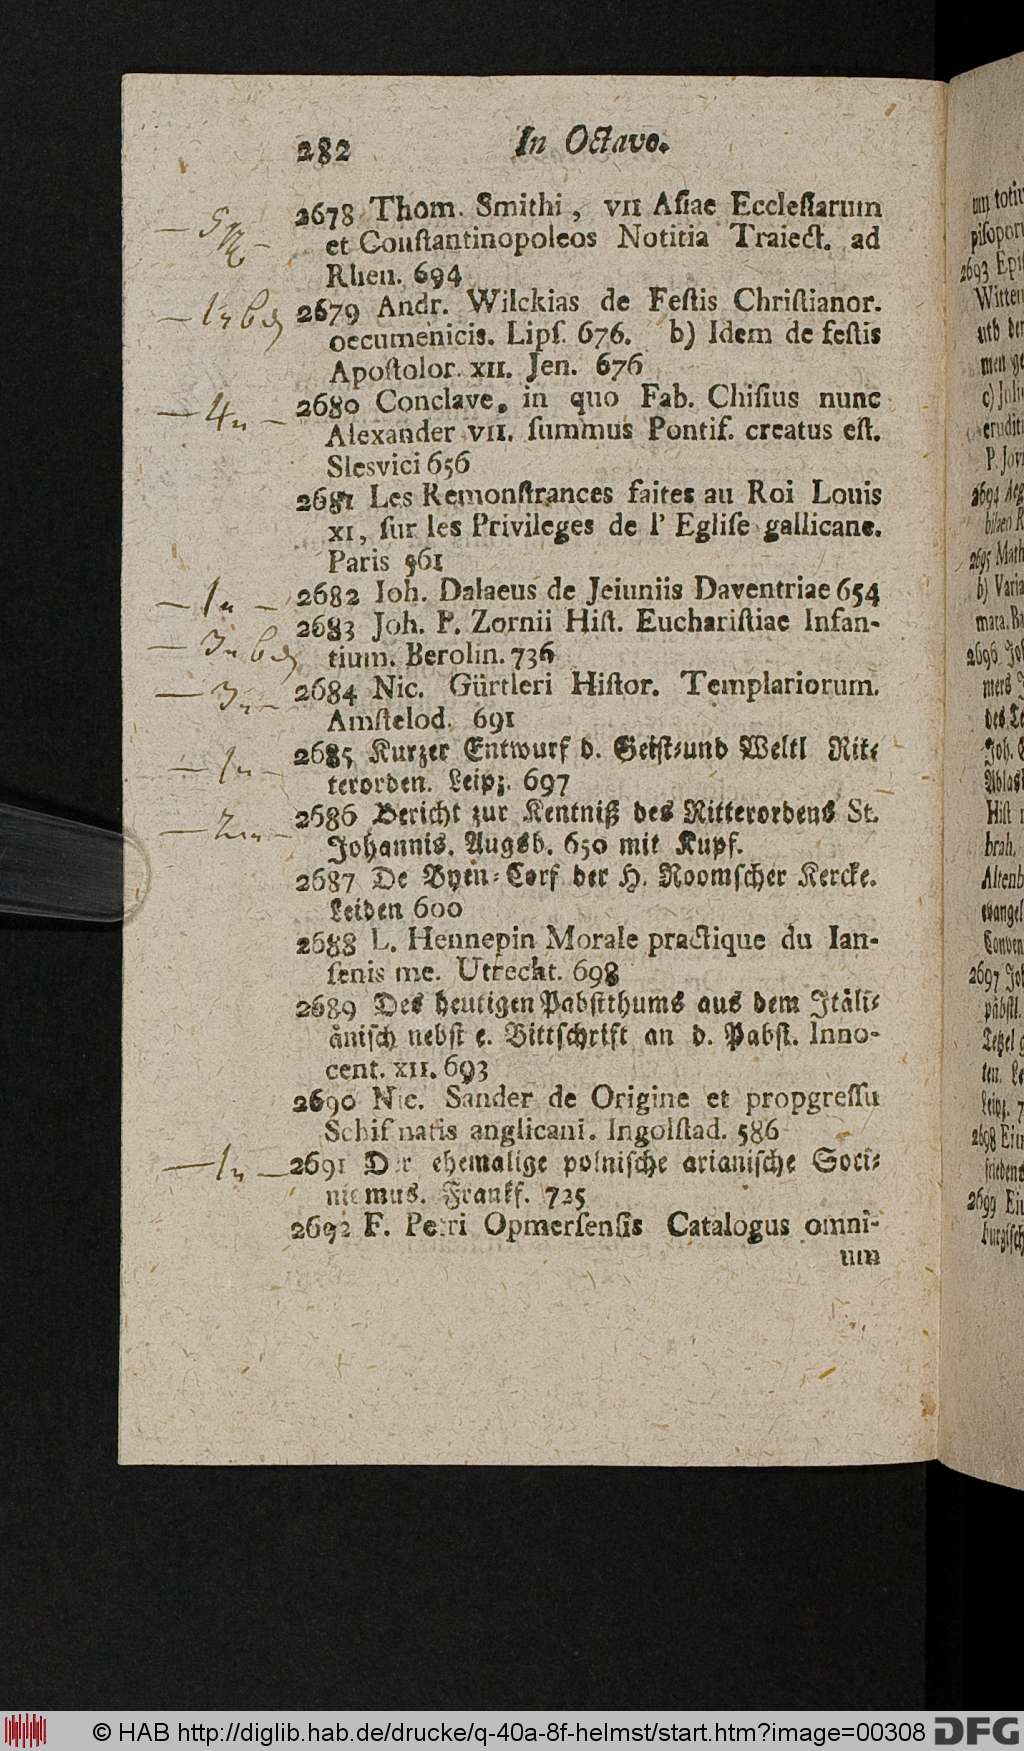 282 In Octavo.
2678 Thom. Smithi, VII Aſiae Eccleſiarum
et Conſtantinopoleos Notitia Traiect. ad
Rhen. 694
2679 Andr. Wilckias de Feſtis Chriſtianor.
oecumenicis. Lipſ. 676. b) Idem de feſtis
Apoſtolor. XII. Jen. 676
2680 Conclave, in quo Fab. Chiſius nunc
Alexander VII. ſummus Pontif. creatus eſt.
Slesvici 656
2681 Les Remonſtrances faites au Roi Louis
XI, ſur les Privileges de l' Egliſe gallicane.
Paris 561
2682 Ioh. Dalaeus de Jeiuniis Daventriae 654
2683 Joh. P. Zornii Hiſt. Euchariſtiae Infan-
tium. Berolin. 736
2684 Nic. Gürtleri Hiſtor. Templariorum.
Amſtelod. 691
2685 Kurzer Entwurf d. Geiſt-und Weltl Rit-
terorden. Leipz. 697
2686 Bericht zur Kentniß des Ritterordens St.
Johannis. Augsb. 650 mit Kupf.
2687 De Byen-Corf der H. Roomſcher Kercke.
Leiden 600
2688 L. Hennepin Morale practique du Ian-
ſenis me. Utrecht. 698
2689 Des heutigen Pabſtthums aus dem Itäli-
äniſch nebſt e. Bittſchrift an d. Pabſt. Inno-
cent. XII. 693
2690 Nic. Sander de Origine et propgreſſu
Schiſmatis anglicani. Ingolſtad. 586
2691 Der ehemalige polniſche arianiſche Soci-
niſmus. Frankf. 725
2692 F. Petri Opmerſenſis Catalogus omni-
um
© HAB http://diglib.hab.de/drucke/q-40a-8f-helmst/start.htm?image=00308 DFG